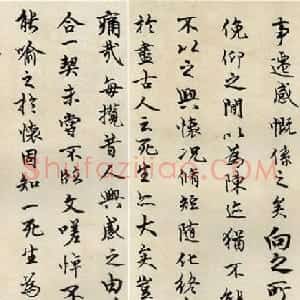 事遷感慨係之矣向之所
俛仰之間以為陳迹猶不能
不以之興懷況脩短隨化終
於盡古人云死生亦大矣豈
痛哉每攬昔人興感之由
合一契未嘗不臨文嗟悼不
能喻之於懷固知一死生為
Shufaziliao.com